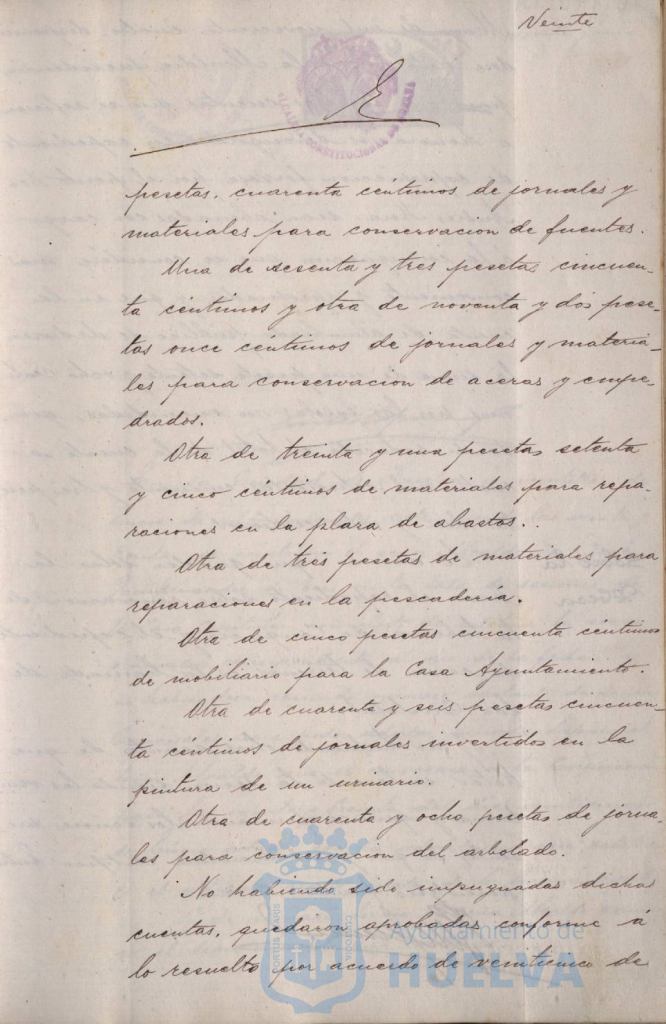 Veinte
ALCALDIA CONSTITUCIONAL DE HUELVA
pesetas, cuarenta céntimos de jornales y
materiales para conservacion de fuentes.
Una de sesenta y tres pesetas cincuen-
ta céntimos y otra de noventa y dos pese-
tas once céntimos de jornales y materia-
les para conservacion de aceras y empe-
drados.
Otra de treinta y una pesetas setenta
y cinco céntimos de materiales para repa-
raciones en la plaza de abastos.
Otra de tres pesetas de materiales para
reparaciones en la pescadería.
Otra de cinco pesetas cincuenta céntimos
de mobiliario para la Casa Ayuntamiento.
Otra de cuarenta y seis pesetas cincuen-
ta céntimos de jornales invertidos en la
pintura de un urinario.
Otra de cuarenta y ocho pesetas de jorna-
les para conservacion del arbolado.
No habiendo sido impugnadas dichas
cuentas, quedaron aprobadas conforme á
lo resuelto por acuerdo de veinticinco de
PORTUS MARIS ET TERRE CUSTODIA
Ayuntamiento de
HUELVA